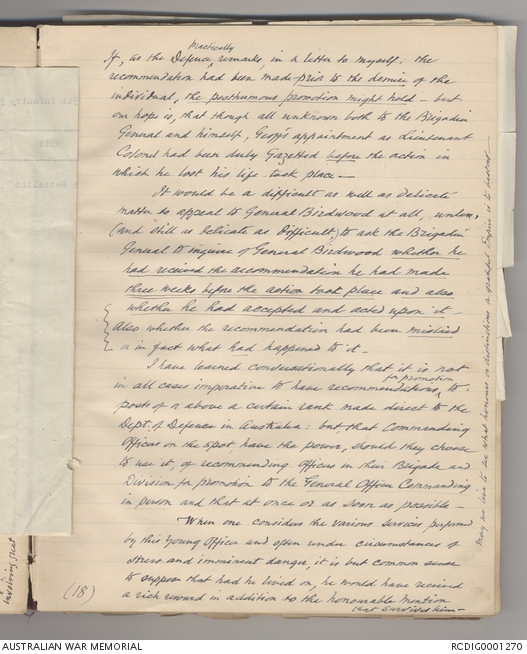 If, as the Defence ^practically remarks, in a letter to myself: the
recommendation had been made prior to the demise of the
individual, the posthumous promotion might hold - but
our hope is, that though all unknown both to the Brigadier
General and himself, Geoff's appointment as Lieutenant
Colonel had been duly Gazetted before the action in
which he lost his life took place -
It would be a difficult as well as delicate
matter to appeal to General Birdwood at all, unless,
(and still as delicate as difficult,) to ask the Brigadier
General to inquire of General Birdwood whether he
had received the recommendation he had made
three weeks before the action took place and also
whether he had accepted and acted upon it -
Also whether the recommendation had been mislaid
or in fact what had happened to it -
I have learned conversationally that it is not
in all cases imperative to have recommendations ^for promotion, to
posts of or above a certain rank made direct to the
Dept. of Defence in Australia: but that Commanding
Officers on the spot, have the power, should they choose
to use it, of recommending Officers in their Brigade and
Division for promotion to the General Officer Commanding
in person and that at once or as soon as possible -
When one considers the various services performed
by this Young Officer and often under circumstances of
stress and imminent danger, it is but common sense
to suppose that had he lived on, he would have received
a rich reward in addition to the honourable mention
that survives him -
(18)
may we live to see what honours or distinctions a grateful Empire is to bestow
involving that
Battalion
AUSTRALIAN WAR MEMORIAL
RCDIG0001270